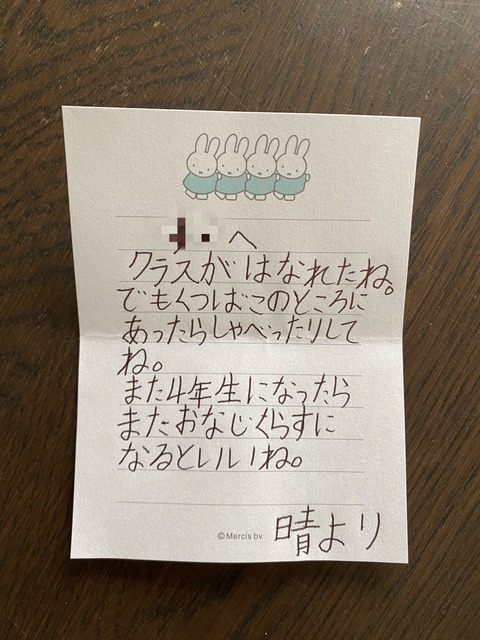 へ
クラスがはなれたね。
でもくつばこのところに
あったらしゃべったりして
ね。
また4年生になったら
またおなじくらすに
なるといいね。
晴より
©Mercis bv